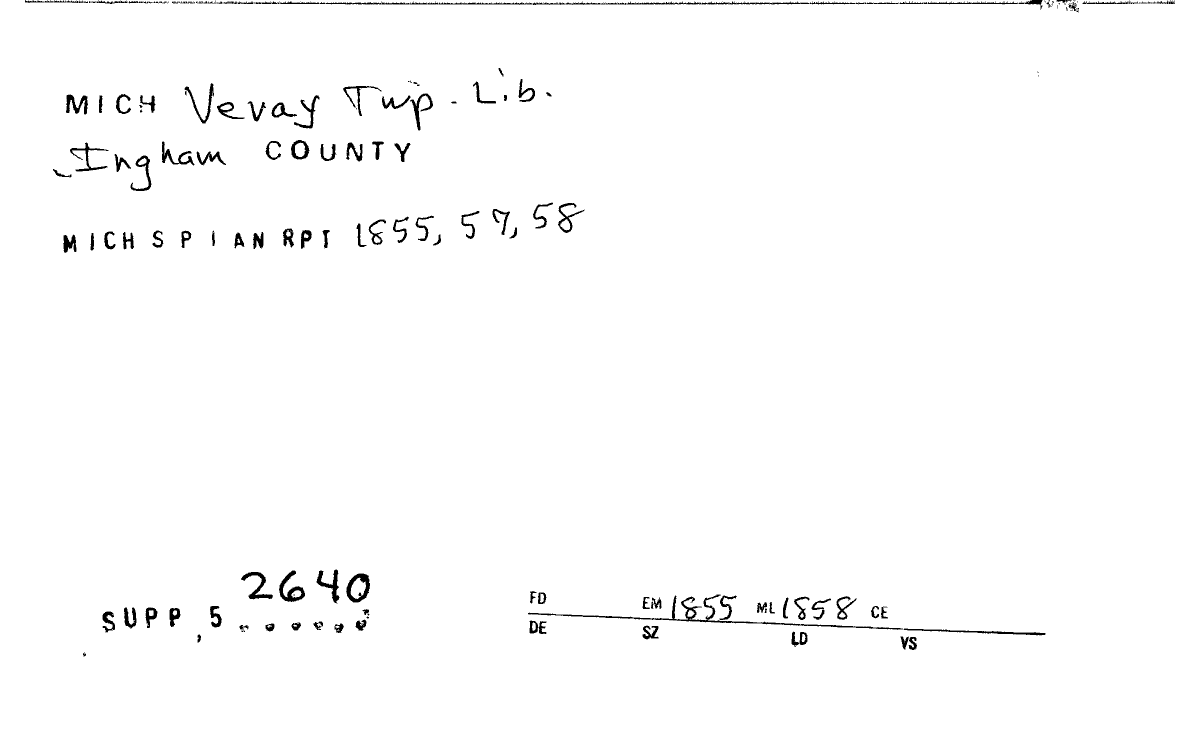 MICH Vevay Twp. Lib.
Ingham COUNTY
MICH S P I AN RPT 1855, 57, 58
2640
SUPP, 5 ......
FD EM 1855 ML 1858 CE
DE SZ LD VS